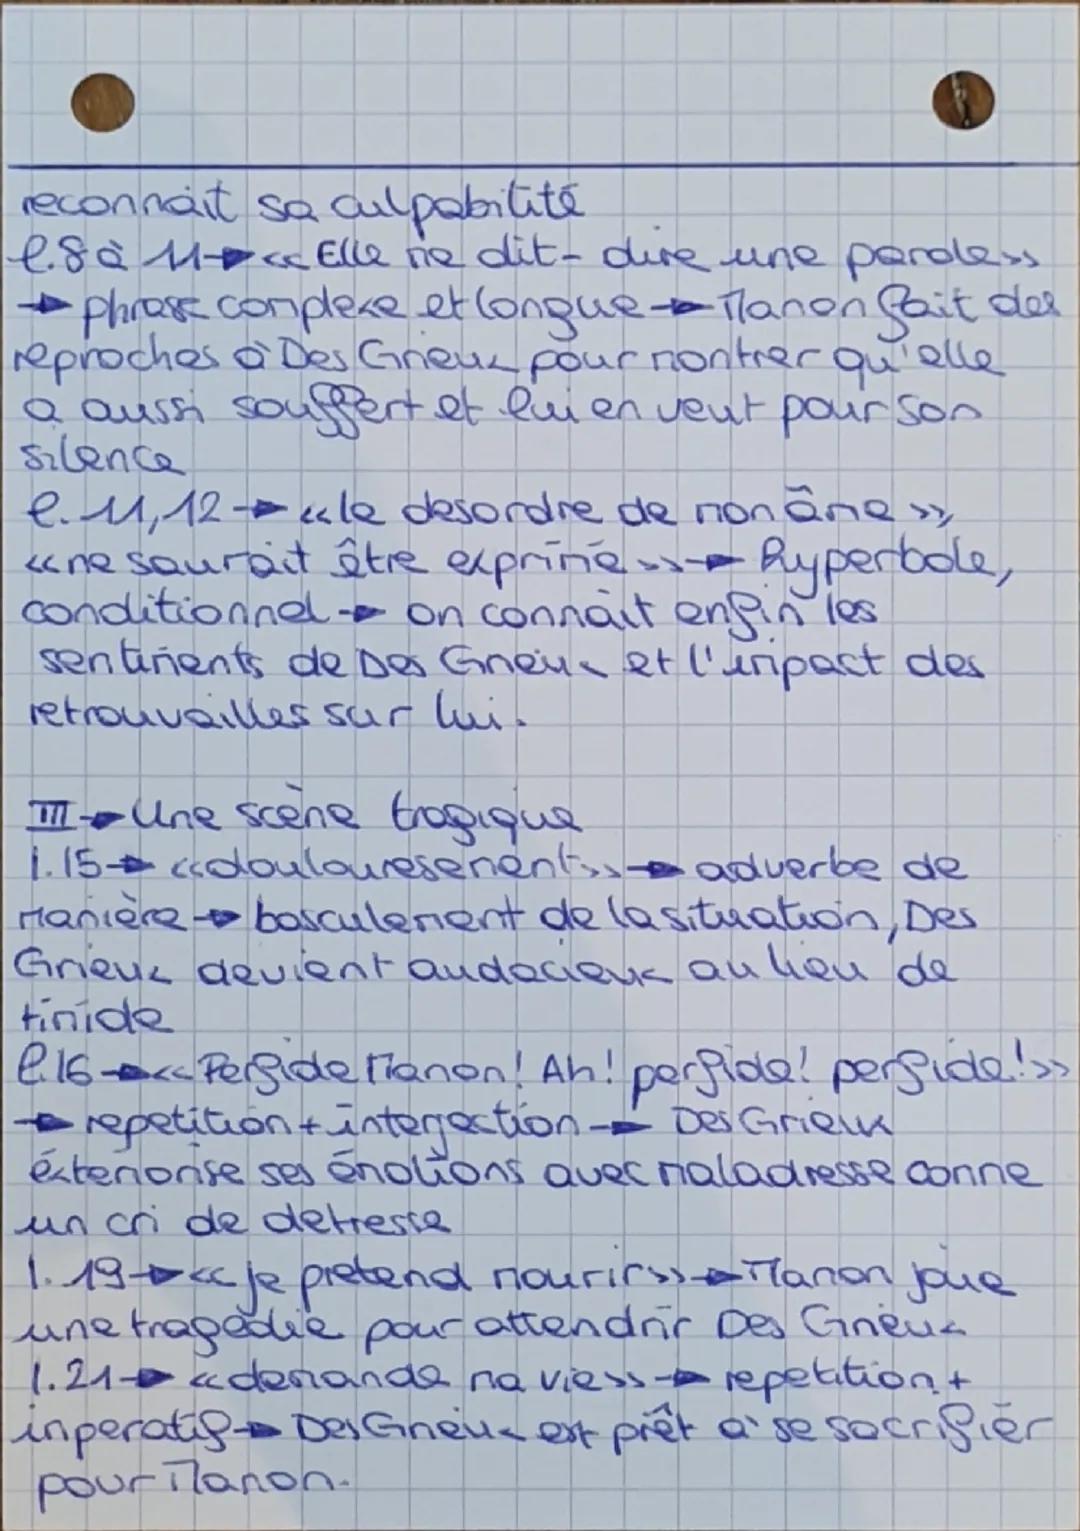 reconnait sa culpabilité
l.8 à 11 → << Elle me dit - dire une parole >>
→ phrase complexe et longue → Manon fait des
reproches à Des Grieux pour montrer qu'elle
a aussi souffert et lui en veut pour son
silence
l. 11, 12 → << le desordre de mon âme >>,
<< ne saurait être exprimé >> → hyperbole,
conditionnel → on connait enfin les
sentiments de Des Grieux et l'impact des
retrouvailles sur lui.
III → Une scène tragique
l.15 → << douloureusement >> → adverbe de
manière → basculement de la situation, Des
Grieux devient audacieux au lieu de
timide
l.16 → << Perfide Manon! Ah! perfide! perfide! >>
→ repetition + interjection → Des Grieux
éxteriorise ses émotions avec maladresse comme
un cri de detresse
l. 19 → << je pretend mourir >> → Manon joue
une tragédie pour attendrir Des Grieux
l.21 → << demande ma vie >> → repetition +
imperatif → Des Grieux est prêt à se sacrifiér
pour Manon.